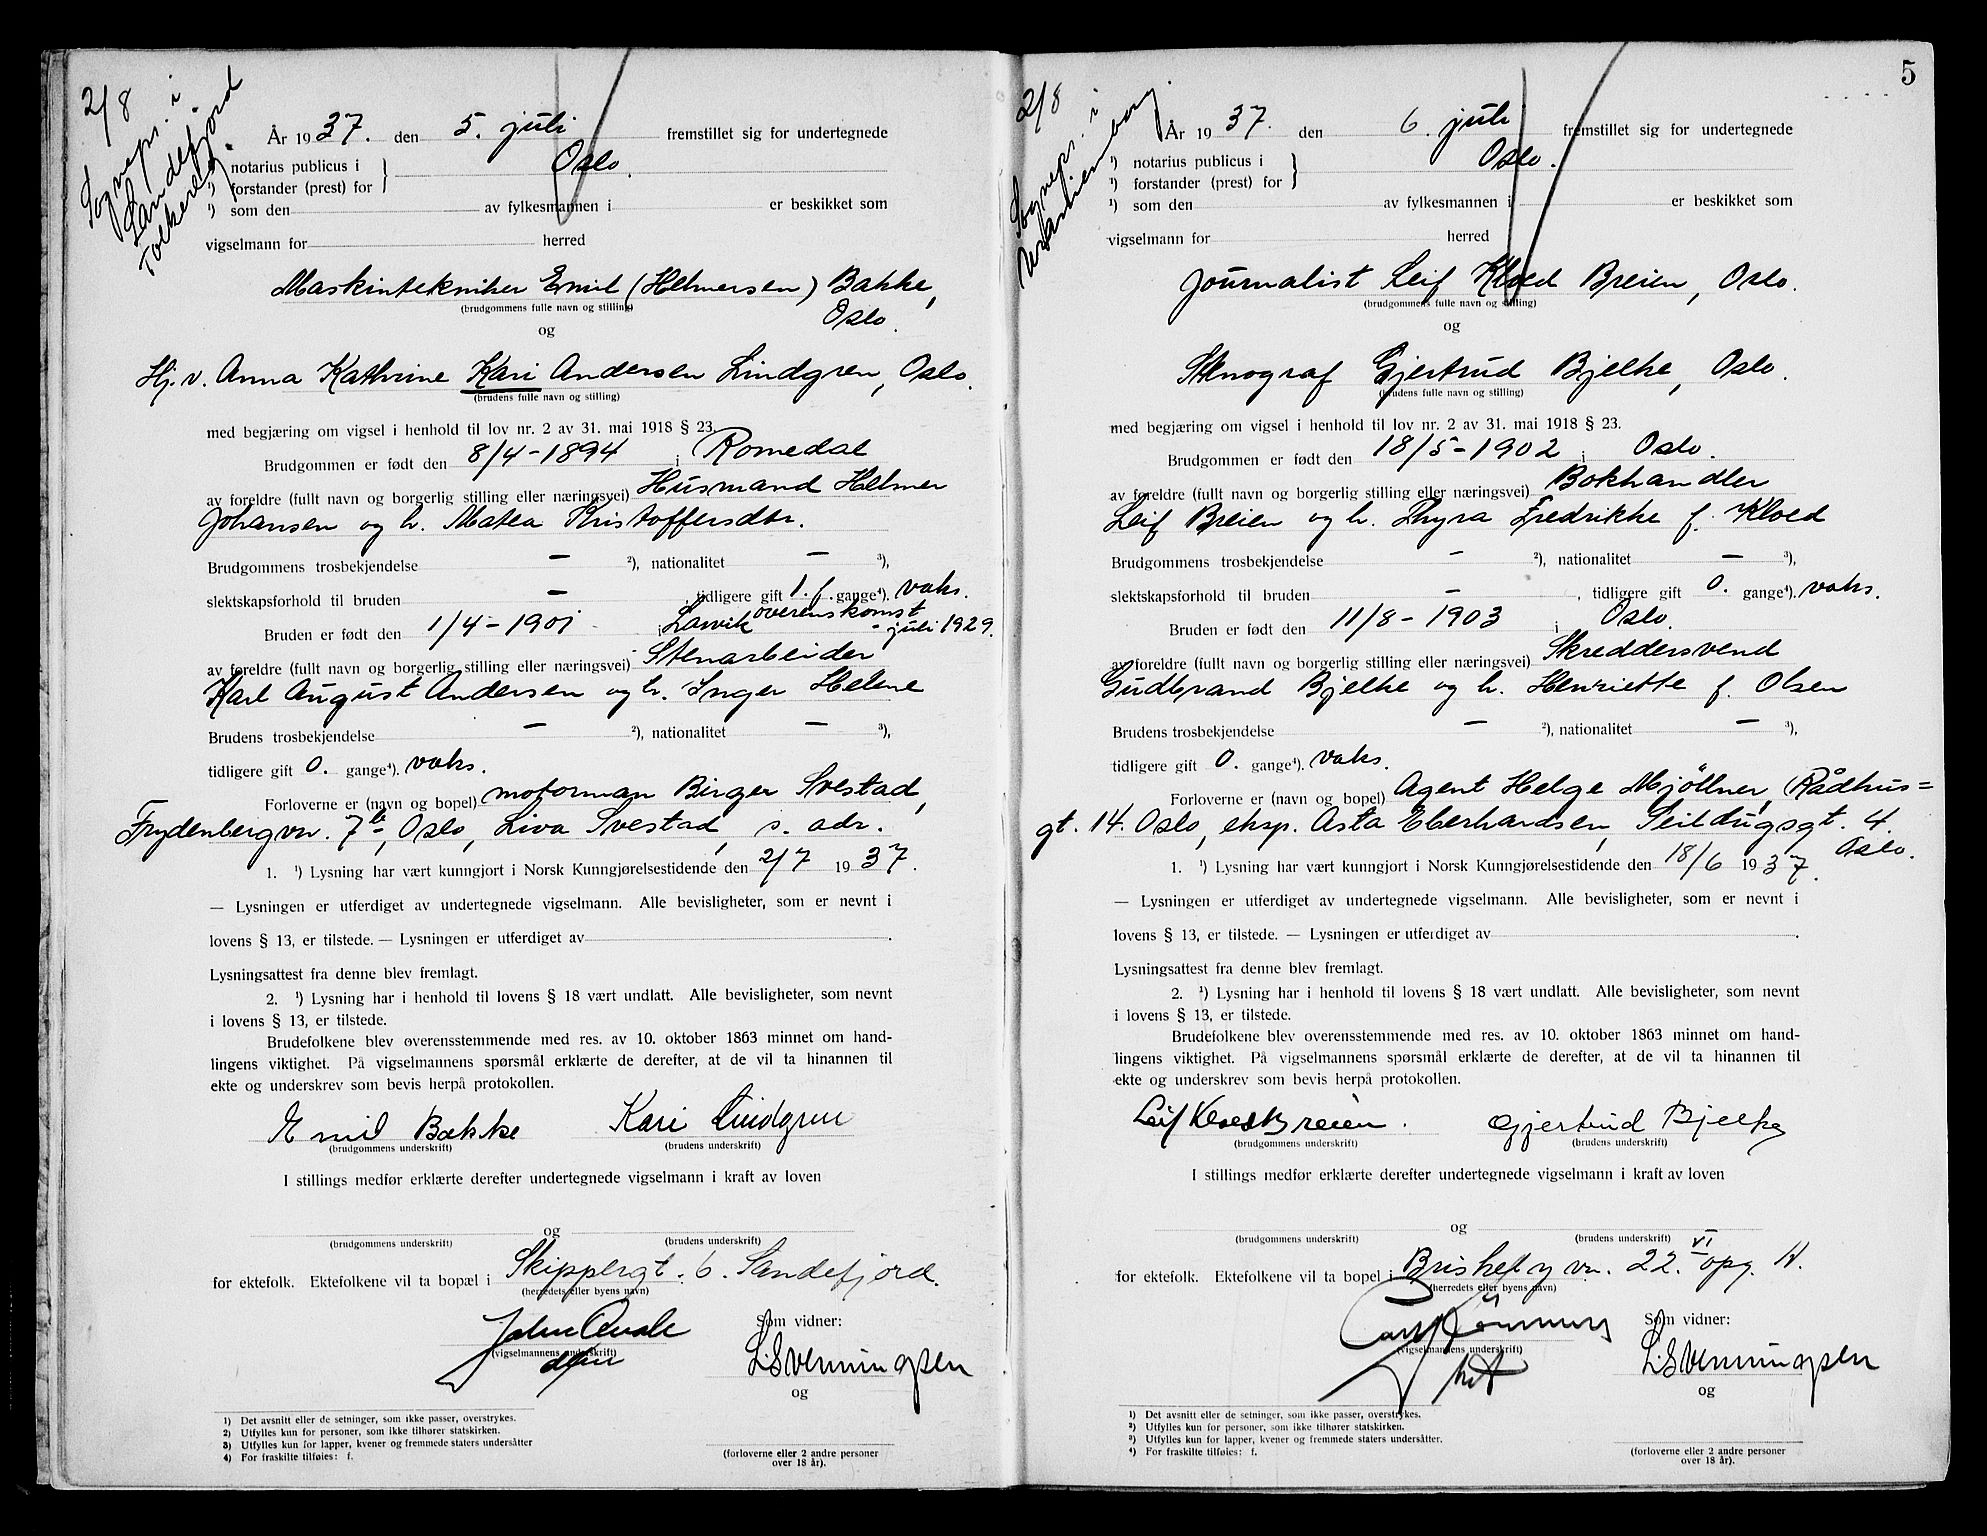 2/8
Sognepr. i
Sandefjord
Folkereg.
År 1937. den 5. juli fremstillet sig for undertegnede
¹) notarius publicus i
¹) forstander (prest) for } Oslo.
¹) som den av fylkesmannen i er beskikket som
vigselmann for herred
Maskintekniker Emil (Helmersen) Bakke,
(brudgommens fulle navn og stilling)
Oslo.
og
Hj.v. Anna Kathrine Kari Andersen Lindgren, Oslo.
(brudens fulle navn og stilling)
med begjæring om vigsel i henhold til lov nr. 2 av 31. mai 1918 § 23.
Brudgommen er født den 8/4-1894 i Romedal
av foreldre (fullt navn og borgerlig stilling eller næringsvei) Husmand Helmer
Johansen og h. Matea Kristoffersdtr.
Brudgommens trosbekjendelse – ²), nationalitet – ³),
slektskapsforhold til bruden –, tidligere gift 1.f. gange⁴). vaks.
overenskomst
Bruden er født den 1/4-1901 i Larvik - juli 1929.
av foreldre (fullt navn og borgerlig stilling eller næringsvei) Stenarbeider
Karl August Andersen og h. Inger Helene
Brudens trosbekjendelse – ²), nationalitet – ³),
tidligere gift 0. gange⁴). vaks.
Forloverne er (navn og bopel) motorman Birger Svestad,
Frydenbergvn. 7b, Oslo, Liva Svestad, s. adr.
1. ¹) Lysning har vært kunngjort i Norsk Kunngjørelsestidende den 2/7 1937.
— Lysningen er utferdiget av undertegnede vigselmann. Alle bevisligheter, som er nevnt i
lovens § 13, er tilstede. — Lysningen er utferdiget av .
Lysningsattest fra denne blev fremlagt.
2. ¹) Lysning har i henhold til lovens § 18 vært undlatt. Alle bevisligheter, som nevnt
i lovens § 13, er tilstede.
Brudefolkene blev overensstemmende med res. av 10. oktober 1863 minnet om hand-
lingens viktighet. På vigselmannens spørsmål erklærte de derefter, at de vil ta hinannen til
ekte og underskrev som bevis herpå protokollen.
Emil Bakke Kari Lindgren
(brudgommens underskrift) (brudens underskrift)
I stillings medfør erklærte derefter undertegnede vigselmann i kraft av loven
og
(brudgommens underskrift) (brudens underskrift)
for ektefolk. Ektefolkene vil ta bopæl i Skippergt. 6. Sandefjord.
(herredets eller byens navn)
Som vidner:
(vigselmannens underskrift)
L. Svenningsen
og
1) Det avsnitt eller de setninger, som ikke passer, overstrykes.
2) Utfylles kun for personer, som ikke tilhører statskirken.
3) Utfylles kun for lapper, kvener og fremmede staters undersåtter
4) For fraskilte tilføies: f.
(forloverne eller 2 andre personer
over 18 år).
5
2/8
Sognepr. i
År 1937. den 6. juli fremstillet sig for undertegnede
¹) notarius publicus i
¹) forstander (prest) for } Oslo.
¹) som den av fylkesmannen i er beskikket som
vigselmann for herred
Journalist Leif Kloed Breien, Oslo.
(brudgommens fulle navn og stilling)
og
Stenograf Gjertrud Bjelke, Oslo.
(brudens fulle navn og stilling)
med begjæring om vigsel i henhold til lov nr. 2 av 31. mai 1918 § 23.
Brudgommen er født den 18/5-1902 i Oslo.
av foreldre (fullt navn og borgerlig stilling eller næringsvei) Bokhandler
Leif Breien og h. Thyra Fredrikke f. Kloed
Brudgommens trosbekjendelse – ²), nationalitet – ³),
slektskapsforhold til bruden –, tidligere gift 0. gange⁴). vaks.
Bruden er født den 11/8-1903 i Oslo.
av foreldre (fullt navn og borgerlig stilling eller næringsvei) Skreddersvend
Gudbrand Bjelke og h. Henriette f. Olsen
Brudens trosbekjendelse – ²), nationalitet – ³),
tidligere gift 0. gange⁴). vaks.
Forloverne er (navn og bopel) Agent Helge Mjöllner, Rådhus=
gt. 14. Oslo, eksp. Asta Eberhardsen, Seildugsgt. 4.
Oslo.
1. ¹) Lysning har vært kunngjort i Norsk Kunngjørelsestidende den 18/6 1937.
— Lysningen er utferdiget av undertegnede vigselmann. Alle bevisligheter, som er nevnt i
lovens § 13, er tilstede. — Lysningen er utferdiget av .
Lysningsattest fra denne blev fremlagt.
2. ¹) Lysning har i henhold til lovens § 18 vært undlatt. Alle bevisligheter, som nevnt
i lovens § 13, er tilstede.
Brudefolkene blev overensstemmende med res. av 10. oktober 1863 minnet om hand-
lingens viktighet. På vigselmannens spørsmål erklærte de derefter, at de vil ta hinannen til
ekte og underskrev som bevis herpå protokollen.
Leif Kloed Breien. Gjertrud Bjelke
(brudgommens underskrift) (brudens underskrift)
I stillings medfør erklærte derefter undertegnede vigselmann i kraft av loven
og
(brudgommens underskrift) (brudens underskrift)
for ektefolk. Ektefolkene vil ta bopel i Briskebyvn. 22. VI opg. H.
(herredets eller byens navn)
Som vidner:
(vigselmannens underskrift)
L. Svenningsen
og
1) Det avsnitt eller de setninger, som ikke passer, overstrykes.
2) Utfylles kun for personer, som ikke tilhører statskirken.
3) Utfylles kun for lapper, kvener og fremmede staters undersåtter.
4) For fraskilte tilføies: f.
(forloverne eller 2 andre personer
over 18 år).